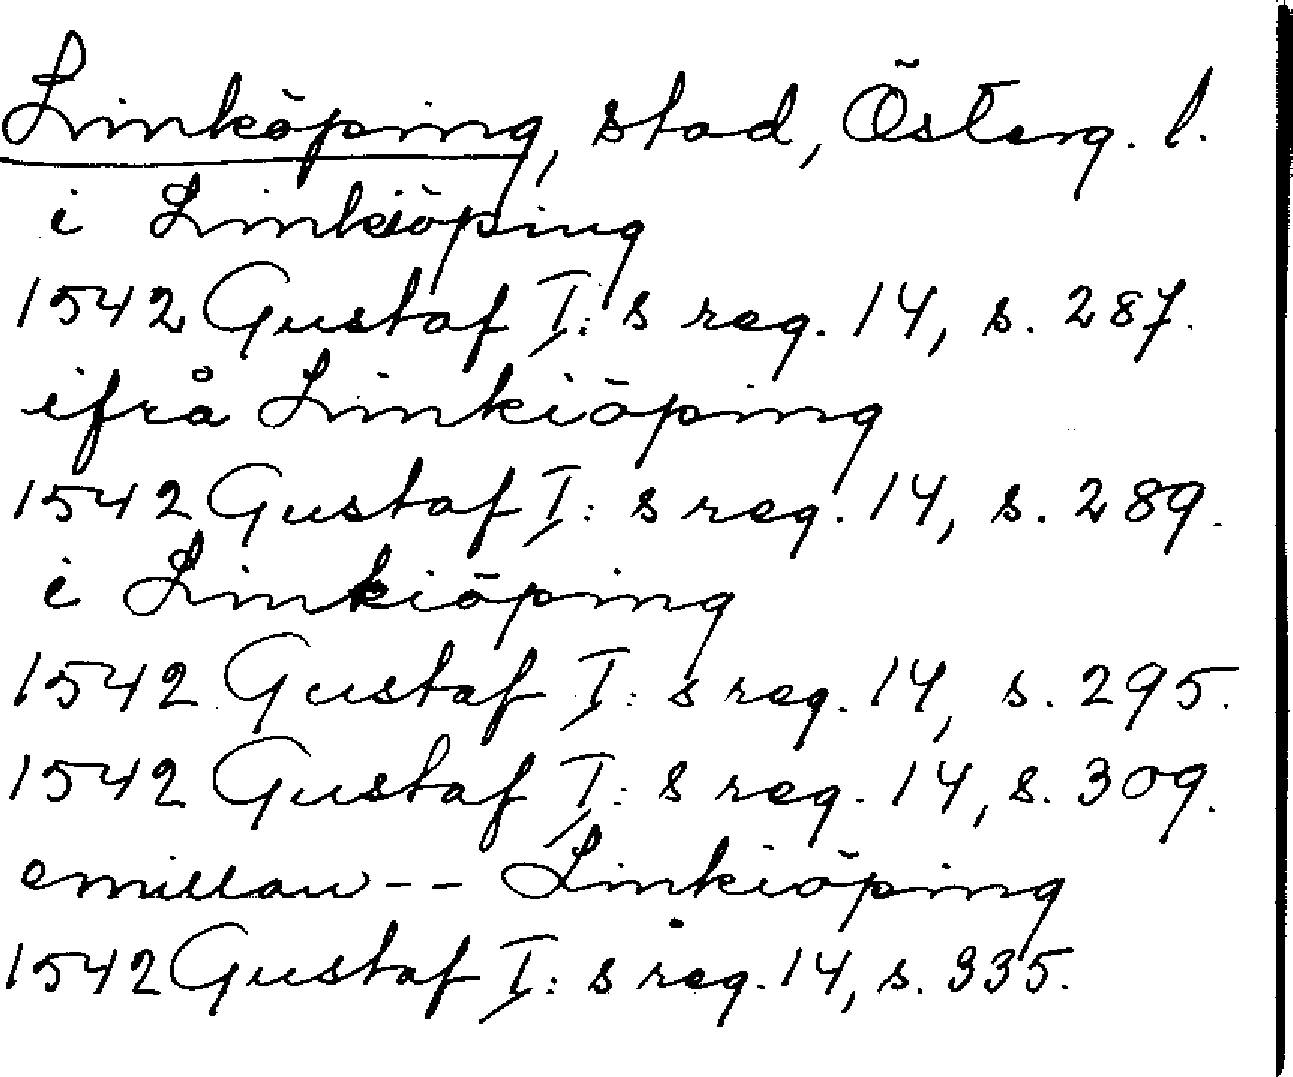 Linköping, stad, Österg. l.
i Linkiöping
1542 Gustaf I:s reg. 14, s. 287.
ifrå Linkiöping
1542 Gustaf I:s reg. 14, s. 289.
i Linkiöping
1542 Gustaf I:s reg. 14, s. 295.
1542 Gustaf I:s reg. 14, s. 309.
emillan -- Linkiöping
1542 Gustaf I:s reg. 14, s. 335.